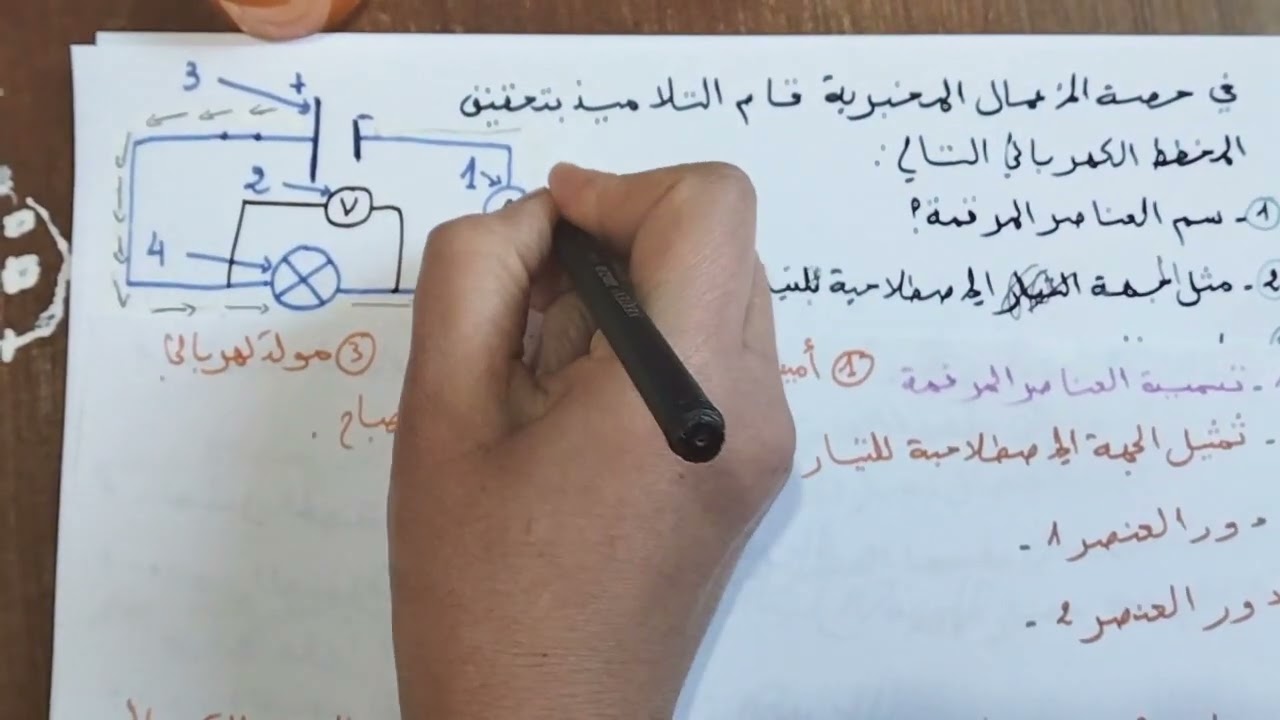 في حصة الأعمال المخبرية قام التلاميذ بتحقيق
المخطط الكهربائي التالي :
1- سم العناصر المرقمة؟
2- مثل الجهة الإصطلاحية للتيا
3 +
-
2 V
1
4
- تسمية العناصر المرقمة ① أمبي ③ مولد كهربائي
صباح .
- تمثيل الجهة الإصطلاحية للتيار
دور العنصر 1 -
دور العنصر 2 -